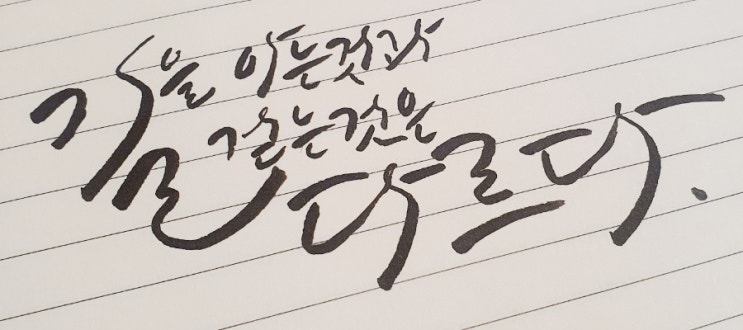 길을 아는것과
걷는것은
다르다.